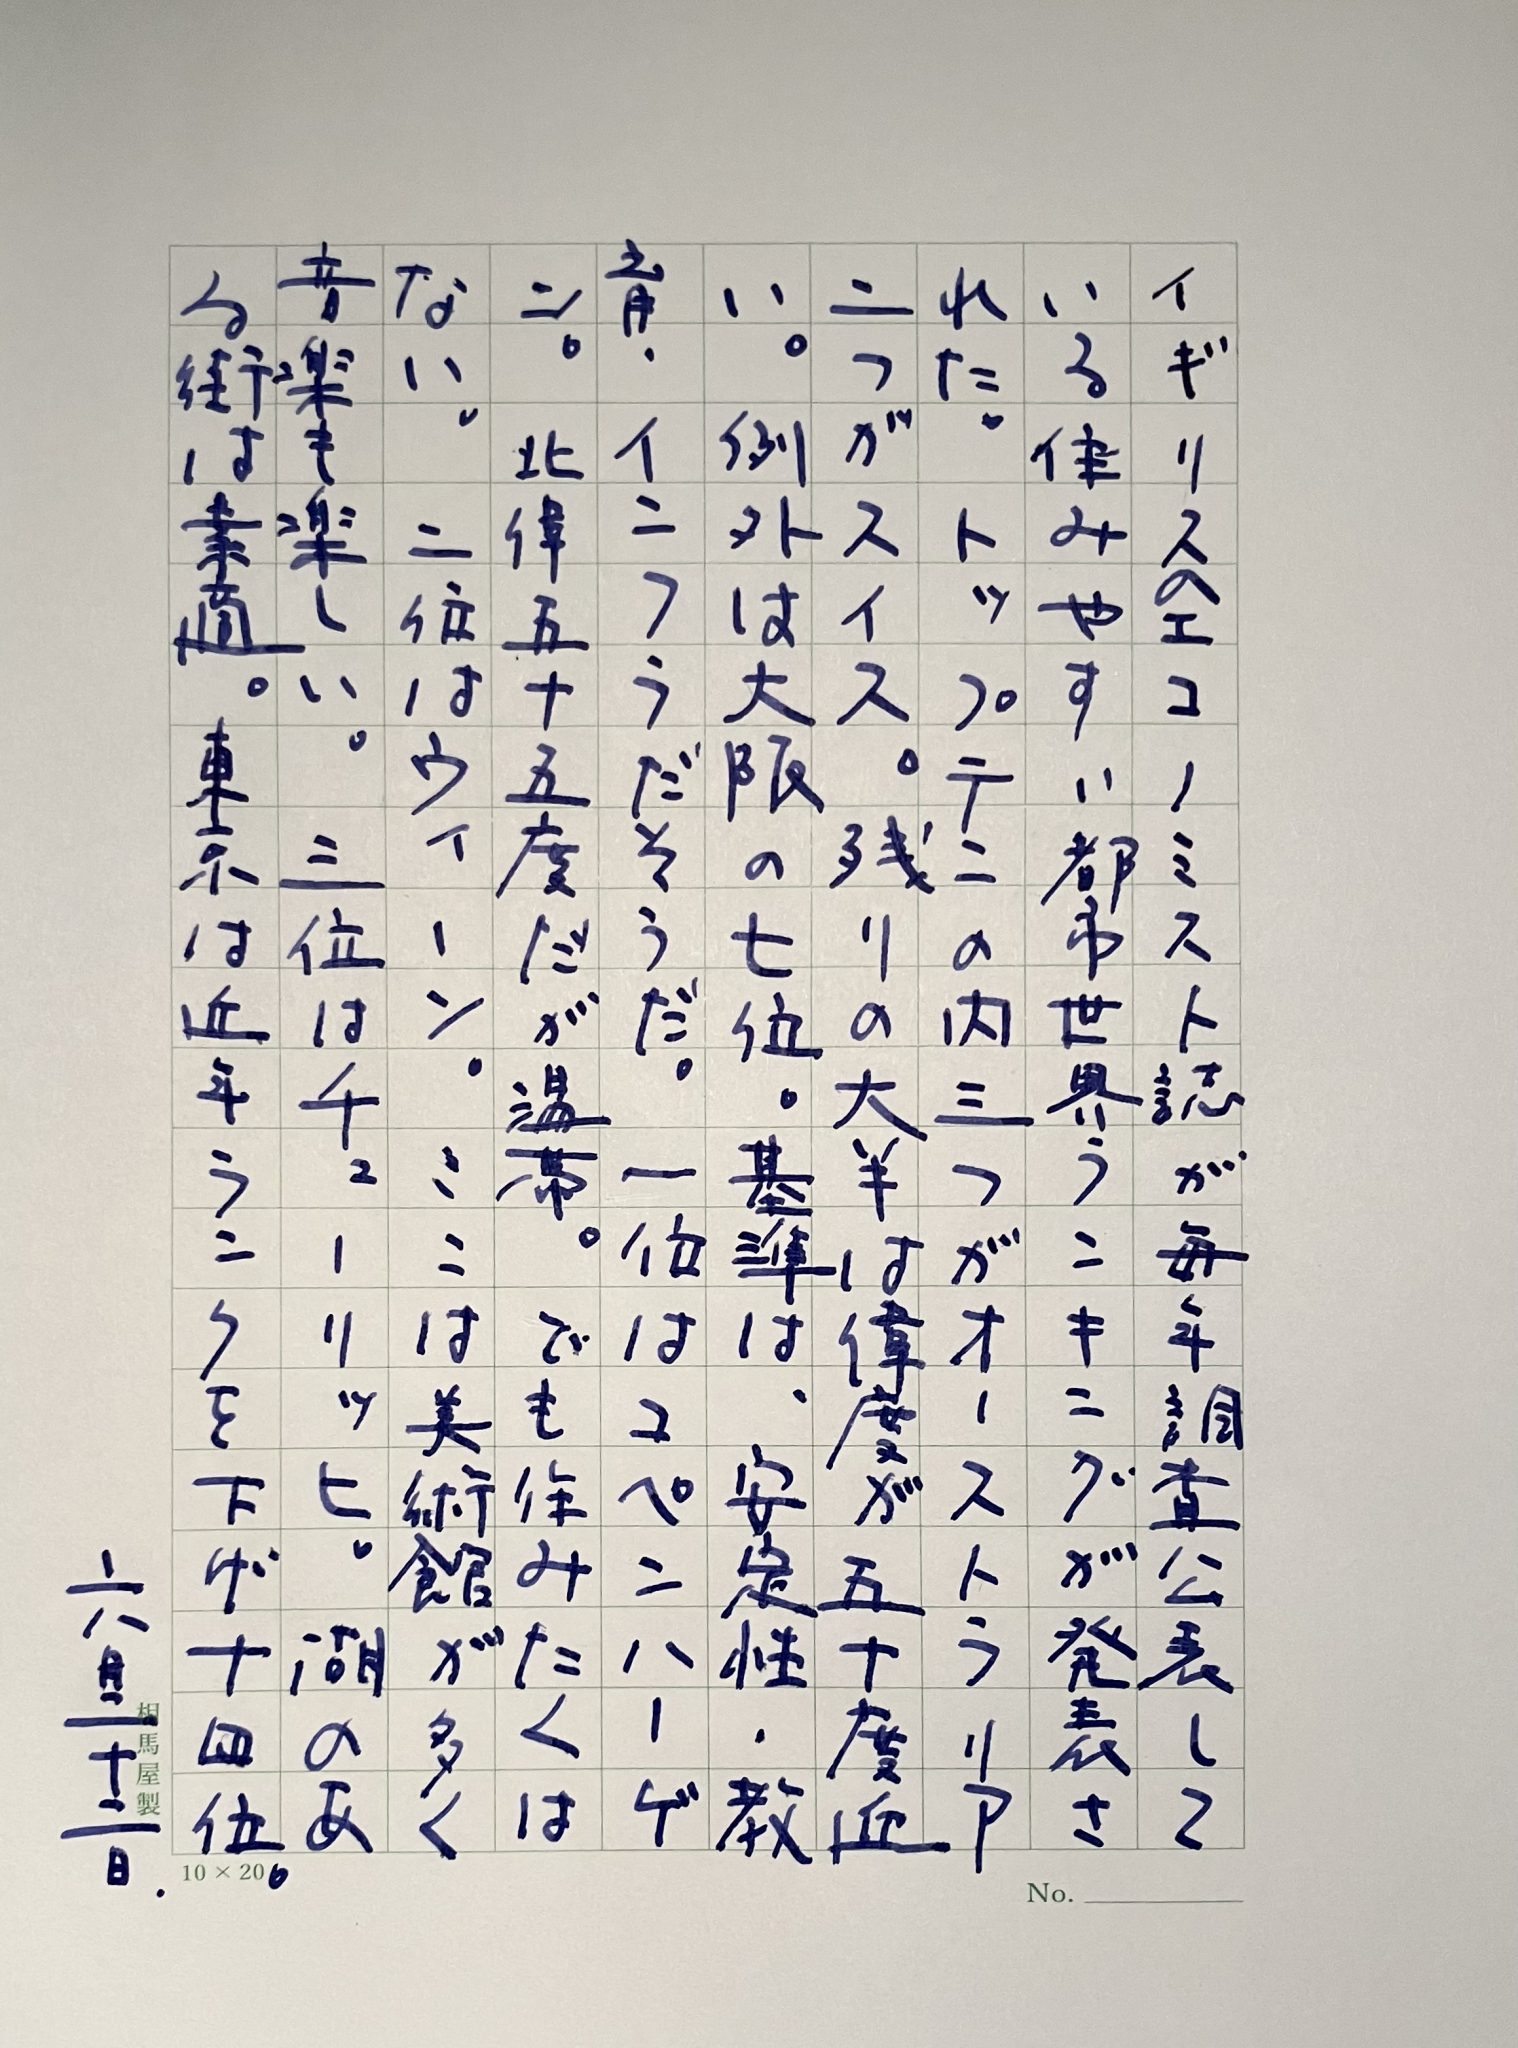 イギリスのエコノミスト誌が毎年調査公表して
いる住みやすい都市世界ランキングが発表さ
れた。トップテンの内三つがオーストラリア
二つがスイス。残りの大半は偉度が五十度近
い。例外は大阪の七位。基準は、安定性・教
育・インフラだそうだ。一位はコペンハーゲ
ン。北偉五十五度だが温帯。でも住みたくは
ない。二位はウィーン。ここは美術館が多く
音楽も楽しい。三位はチューリッヒ。湖のあ
る街は素適。東京は近年ランクを下げ十四位。
六月二十二日.
相馬屋製
10 × 20
No.